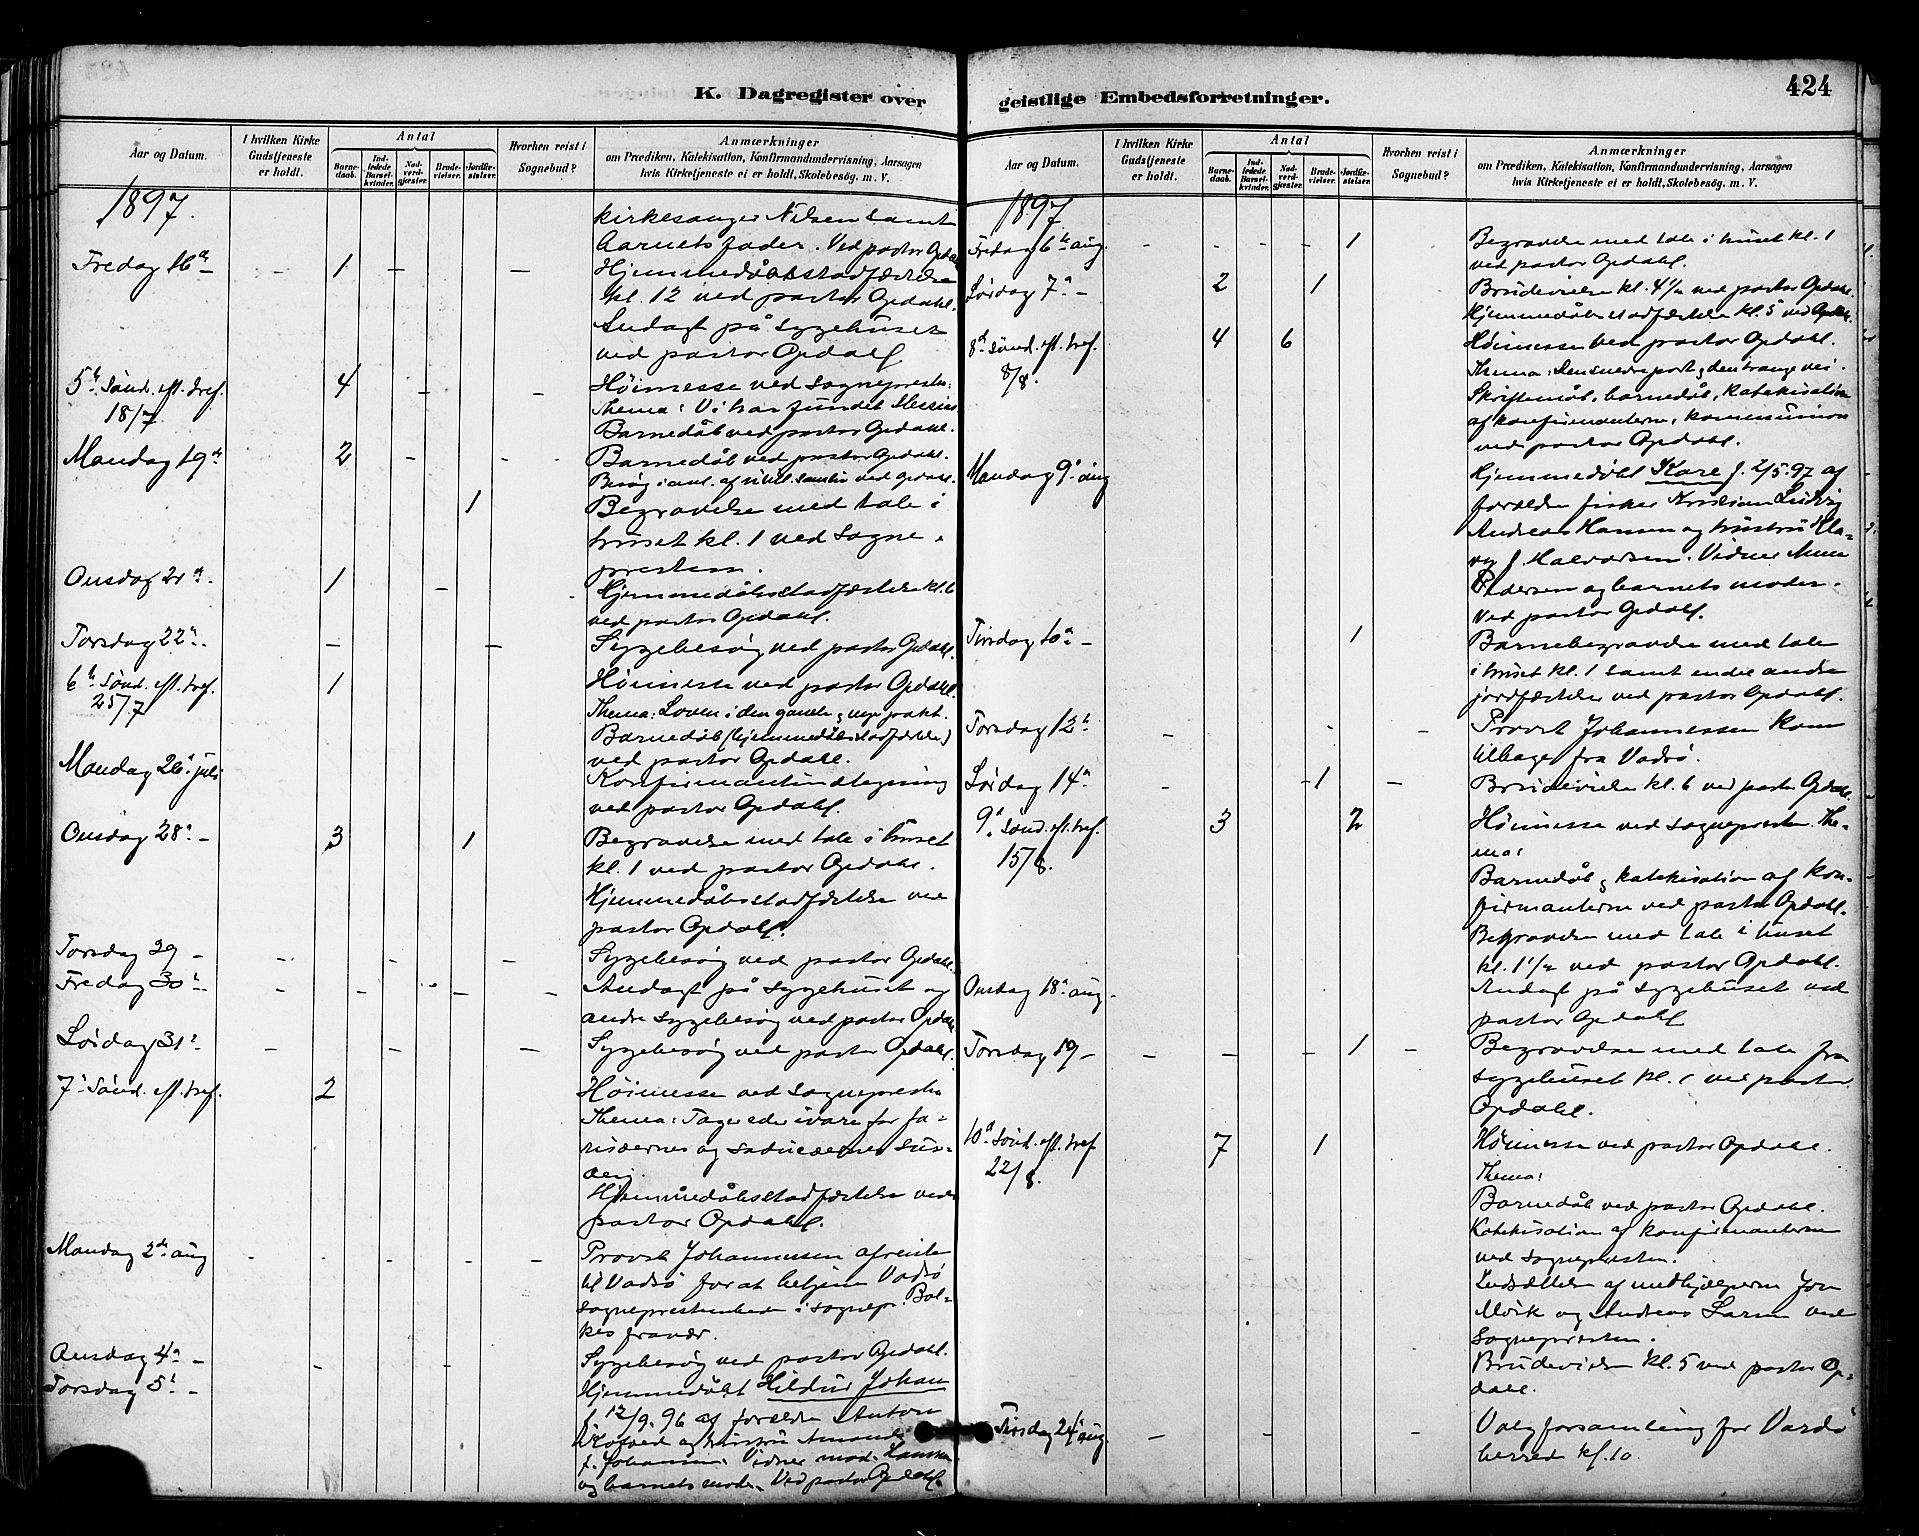 K. Dagregister over
geistlige Embedsforretninger.
424
Aar og Datum.
I hvilken Kirke Gudstjeneste er holdt.
Antal
Barnedaab.
Indledede Barselkvinder.
Nadverdgjester.
Brudevielser.
Jordfæstelser.
Hvorhen reist i Sognebud?
Anmærkninger
om Prædiken, Katekisation, Konfirmandundervisning, Aarsagen
hvis Kirketjeneste ei er holdt, Skolebesøg. m. V.
1897.
kirkesanger Nilsen samt
barnets fader. Ved pastor Opdahl
Fredag 16de – 1 Hjemmedåbsstadfæstelse
kl. 12 ved pastor Opdahl.
Andagt på sygehuset
ved pastor Opdahl
5te Sønd. eft. tref. 4 Høimesse ved sognepresten.
18/7. Thema: Vi har fundet Messias
Barnedåb ved pastor Opdahl.
Mandag 19de 2 Barnedåb ved pastor Opdahl.
Besøg i anl. af vildt samliv ved Opdahl.
1 Begravelse med tale i
huset kl. 1 ved sogne-
presten.
Onsdag 21de – 1 Hjemmedåbsstadfæstelse kl. 6
ved pastor Opdahl.
Torsdag 22de – Sygebesøg ved pastor Opdahl.
6te Sønd. eft. tref. 1 Høimesse ved pastor Opdahl.
25/7 Thema: Loven i den gamle og nye pakt.
Barnedåb (hjemmedåbsstadfæstelse)
ved pastor Opdahl.
Mandag 26de juli Konfirmantindtegning
ved pastor Opdahl.
Onsdag 28de – 3 1 Begravelse med tale i huset
kl. 1 ved pastor Opdahl.
Hjemmedåbsstadfæstelse ved
pastor Opdahl.
Torsdag 29 – Sygebesøg ved pastor Opdahl.
Fredag 30te – Andagt på sygehuset og
andre sygebesøg ved pastor Opdahl
Lørdag 31te – Sygebesøg ved pastor Opdahl.
7de Sønd. eft. tref. 2 Høimesse ved sognepresten
Thema: Tager eder ivare for fa-
risæernes og saducæernes sur-
deig.
Hjemmedåbsstadfæstelse ved
pastor Opdahl.
Mandag 2den aug Provst Johannessen afreiste
til Vadsø for at betjene Vadsø
sogneprestembede i sognepr. Bal-
kes fravær.
Onsdag 4de – Sygebesøg ved pastor Opdahl.
Torsdag 5te – Hjemmedøbt Hildur Johan
f. 12/9. 96 af forældre Anton
og hustru Amanda
f. Johansen. Vidner mad. Hansen
og barnets moder. Ved pastor Opdahl.
Aar og Datum.
I hvilken Kirke Gudstjeneste er holdt.
Antal
Barnedaab.
Indledede Barselkvinder.
Nadverdgjester.
Brudevielser.
Jordfæstelser.
Hvorhen reist i Sognebud?
Anmærkninger
om Prædiken, Katekisation, Konfirmandundervisning, Aarsagen
hvis Kirketjeneste ei er holdt, Skolebesøg. m. V.
1897
Fredag 6te aug. 1 Begravelse med tale i huset kl. 1
ved pastor Opdahl.
Lørdag 7de – 2 1 Brudevielse kl. 4½ ved pastor Opdahl.
Hjemmedåbsstadfæstelse kl. 5 ved Opdahl.
8de Sønd. eft. tref. 4 6 Høimesse ved pastor Opdahl.
8/8. Thema: Den snevre port og den trange vei.
Skriftemål, barnedåb, katekisation
af konfirmanterne, kommunion
ved pastor Opdahl.
Mandag 9de aug Hjemmedøbt Kare f. 2/5. 97 af
forældre fisker Kristian Ludvig
Andreas Hansen og hustru Hla-
vog f. Halvorsen. Vidner Anna
Pedersen og barnets moder.
Ved pastor Opdahl.
Tirsdag 10de – 1 Barnebegravelse med tale
i huset kl. 1 samt endre andre
jordfæstelser ved pastor Opdahl.
Torsdag 12te Provst Johannessen kom
tilbage fra Vadsø.
Lørdag 14de 1 Brudevielse kl. 6 ved pastor Opdahl.
9de Sønd. eft. tref. 3 2 Høimesse ved sognepresten. The-
15/8. ma:
Barnedåb og katekisation af kon-
firmanterne ved pastor Opdahl.
Begravelse med tale i huset
kl. 1½ ved pastor Opdahl.
Onsdag 18de aug. Andagt på sygehuset ved
pastor Opdahl
Torsdag 19 – 1 Begravelse med tale fra
sygehuset kl. 1 ved pastor
Opdahl.
10de Sønd. eft. tref 7 1 Høimesse ved pastor Opdahl.
22/8. Thema:
Barnedåb ved pastor Opdahl.
Katekisation af konfirmanterne
ved sognepresten.
Indsættelse af medhjælperne Jon
Mörk og Andreas Larsen ved
Sognepresten.
Brudevielse kl. 5 ved pastor Op-
dahl.
Tirsdag 24 aug. Valgforsamling for Vardø
herred kl. 10.